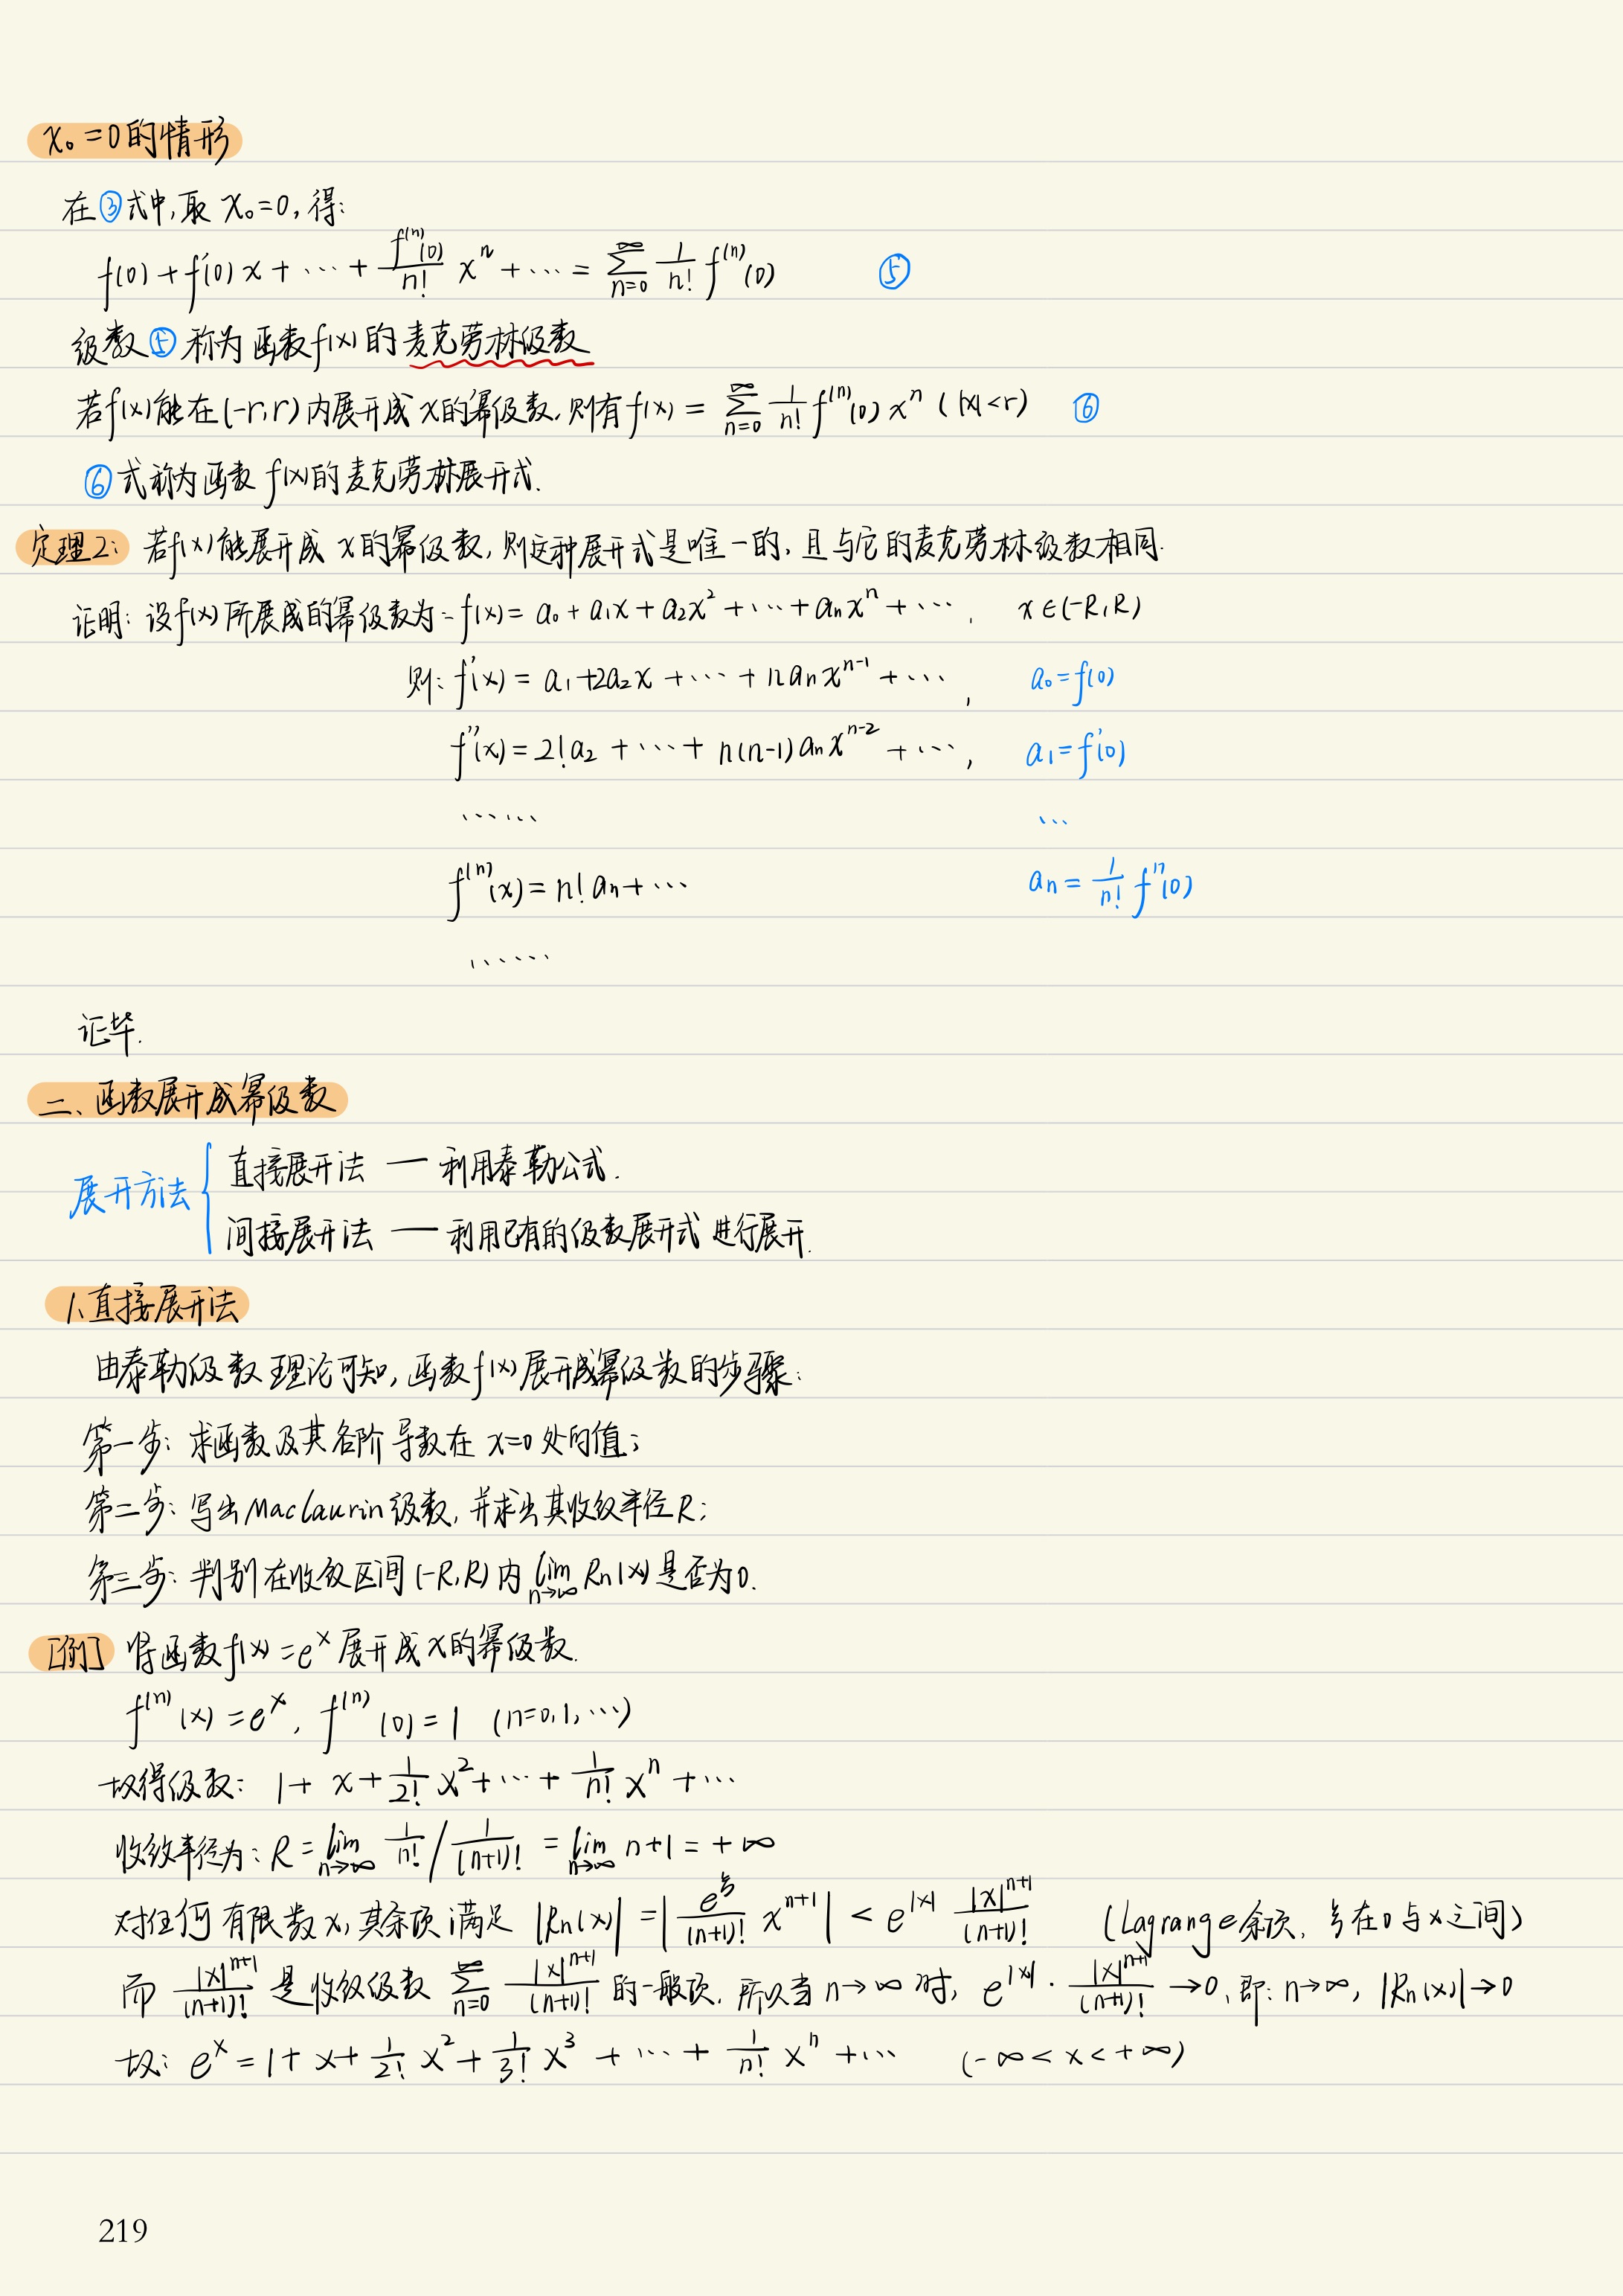 x₀=0的情形
在③式中,取 x₀=0,得:
f(0)+f'(0)x+⋯+\frac{f^{(n)}(0)}{n!}x^n+⋯=\sum_{n=0}^{∞}\frac{1}{n!}f^{(n)}(0) ⑤
级数⑤称为函数f(x)的麦克劳林级数
若f(x)能在(-r,r)内展开成x的幂级数,则有f(x)=\sum_{n=0}^{∞}\frac{1}{n!}f^{(n)}(0)x^n (|x|<r) ⑥
⑥式称为函数f(x)的麦克劳林展开式.
定理2: 若f(x)能展开成x的幂级数,则这种展开式是唯一的,且与它的麦克劳林级数相同.
证明: 设f(x)所展成的幂级数为: f(x)=a₀+a₁x+a₂x²+⋯+aₙx^n+⋯, x∈(-R,R)
则: f'(x)=a₁+2a₂x+⋯+naₙx^{n-1}+⋯, a₀=f(0)
f''(x)=2!a₂+⋯+n(n-1)aₙx^{n-2}+⋯, a₁=f'(0)
⋯⋯ ⋯
f^{(n)}(x)=n!aₙ+⋯ aₙ=\frac{1}{n!}f^{n}(0)
⋯⋯
证毕.
二、函数展开成幂级数
展开方法{ 直接展开法 — 利用泰勒公式.
间接展开法 — 利用已有的级数展开式进行展开.
1、直接展开法
由泰勒级数理论可知,函数f(x)展开成幂级数的步骤:
第一步: 求函数及其各阶导数在x=0处的值;
第二步: 写出Maclaurin级数,并求出其收敛半径R;
第三步: 判别在收敛区间(-R,R)内\lim_{n→∞}Rₙ(x)是否为0.
[例] 将函数f(x)=e^x展开成x的幂级数.
f^{(n)}(x)=e^x, f^{(n)}(0)=1 (n=0,1,⋯)
故得级数: 1+x+\frac{1}{2!}x²+⋯+\frac{1}{n!}x^n+⋯
收敛半径为: R=\lim_{n→∞}\frac{1}{n!}/\frac{1}{(n+1)!}=\lim_{n→∞}n+1=+∞
对任何有限数x,其余项满足 |Rₙ(x)|=|\frac{e^ξ}{(n+1)!}x^{n+1}|<e^{|x|}\frac{|x|^{n+1}}{(n+1)!} (Lagrange余项, ξ在0与x之间)
而\frac{|x|^{n+1}}{(n+1)!}是收敛级数\sum_{n=0}^{∞}\frac{|x|^{n+1}}{(n+1)!}的一般项.所以当n→∞时, e^{|x|}·\frac{|x|^{n+1}}{(n+1)!}→0,即: n→∞, |Rₙ(x)|→0
故: e^x=1+x+\frac{1}{2!}x²+\frac{1}{3!}x³+⋯+\frac{1}{n!}x^n+⋯ (-∞<x<+∞)
219